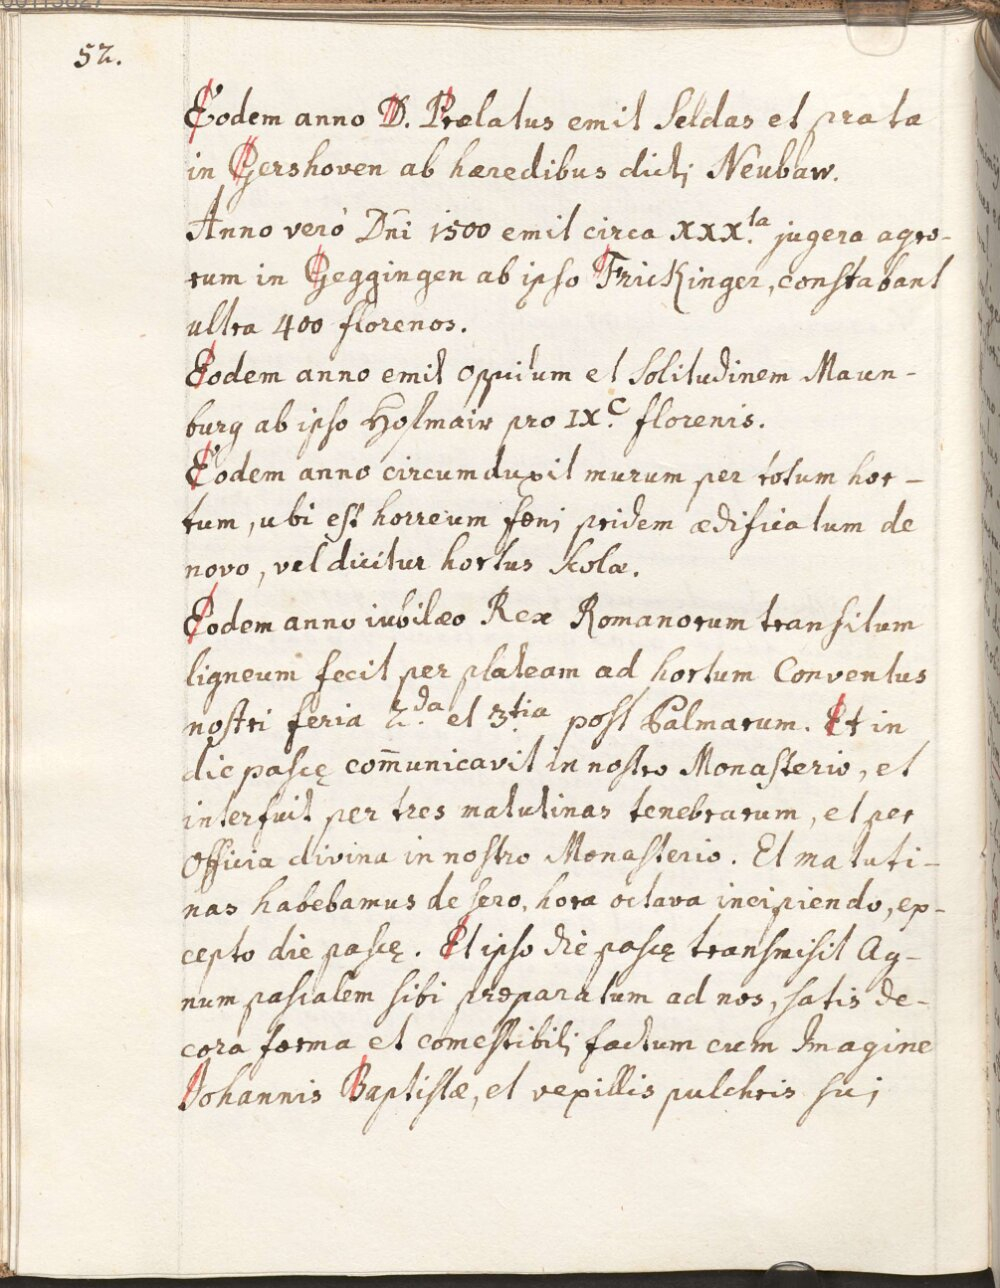 52.
Eodem anno D. Prælatus emit Seldas et prata
in Gershoven ab hæredibus dicti Neubaw.
Anno verò Dn̄i 1500 emit circa XXX.ta jugera agro-
rum in Geggingen ab ipso Frickinger, constabant
ultra 400 florenos.
Eodem anno emit oppidum et solitudinem Maun-
burg ab ipso Hofmair pro IX.C florenis.
Eodem anno circumduxit murum per totum hor-
tum, ubi est horreum fœni pridem ædificatum de
novo, vel dicitur hortus scolæ.
Eodem anno iubilæo Rex Romanorum transitum
ligneum fecit per plateam ad hortum Conventus
nostri feria 2.da et 3.tia post Palmarum. Et in
die pascę com̄unicavit in nostro Monasterio, et
interfuit per tres matutinas tenebrarum, et per
Officia divina in nostro Monasterio. Et matuti-
nas habebamus de sero, hora octava incipiendo, ex-
cepto die pascę. Et ipso die pascę transmisit Ag-
num pascalem sibi præparatum ad nos, satis de-
cora forma et comestibili factum cum Imagine
Johannis Baptistæ, et vexillis pulchris sui